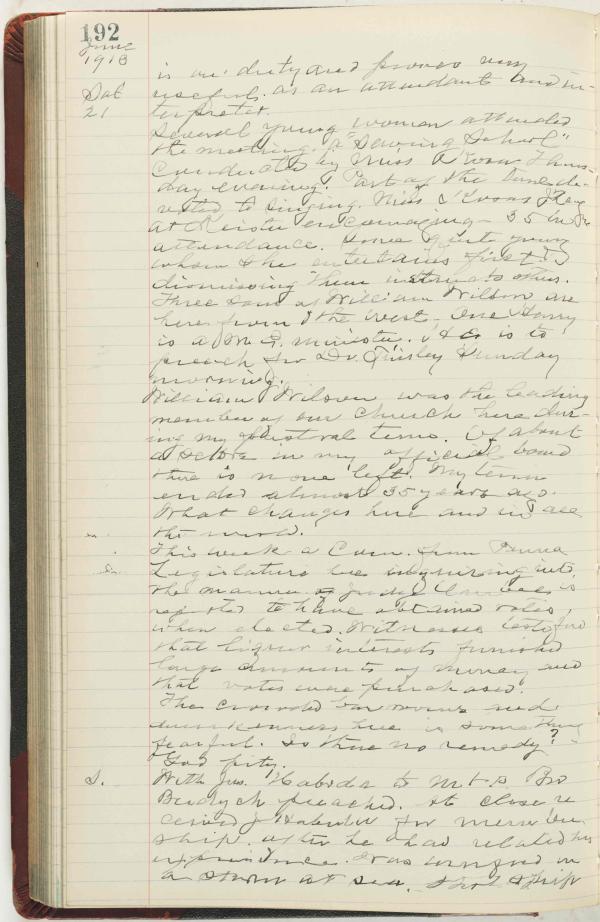 192
June
1913
is on duty and proves very
Sat useful as an attendant and in-
21 terpreter.
Several young women attended
the meeting. A "Sewing School"
conducted by Miss Thurs-
day evening. Part of the time de-
voted to singing. Miss
encouraging - 35 in
attendance. Some quite young
whom she entertains first &
dismissing them instructs others.
Three sons of William Wilson are
here from the West. One Harry
is a M. E. minister. He is to
preach for Dr. Sunday
morning.
William Wilson was the leading
member of our church here dur-
ing my pastoral term. Of about
in my official board
there is none left. My term
ended almost 35 years ago.
What changes here and in all
the world.
This week a Com. from Penna
Legislature
the manner Judge is
reported to have obtained votes,
when elected. Witnesses testified
that liquor interests furnished
large amounts of money and
that votes were purchased.
The crowded bar rooms and
drunkenness here is something
fearful. Is there no remedy?
God pity.
S. With Jos. Haboda to Bro
preached. At close re
ceived for member
ship after he had related his
experience. Was in
a storm at sea. ship